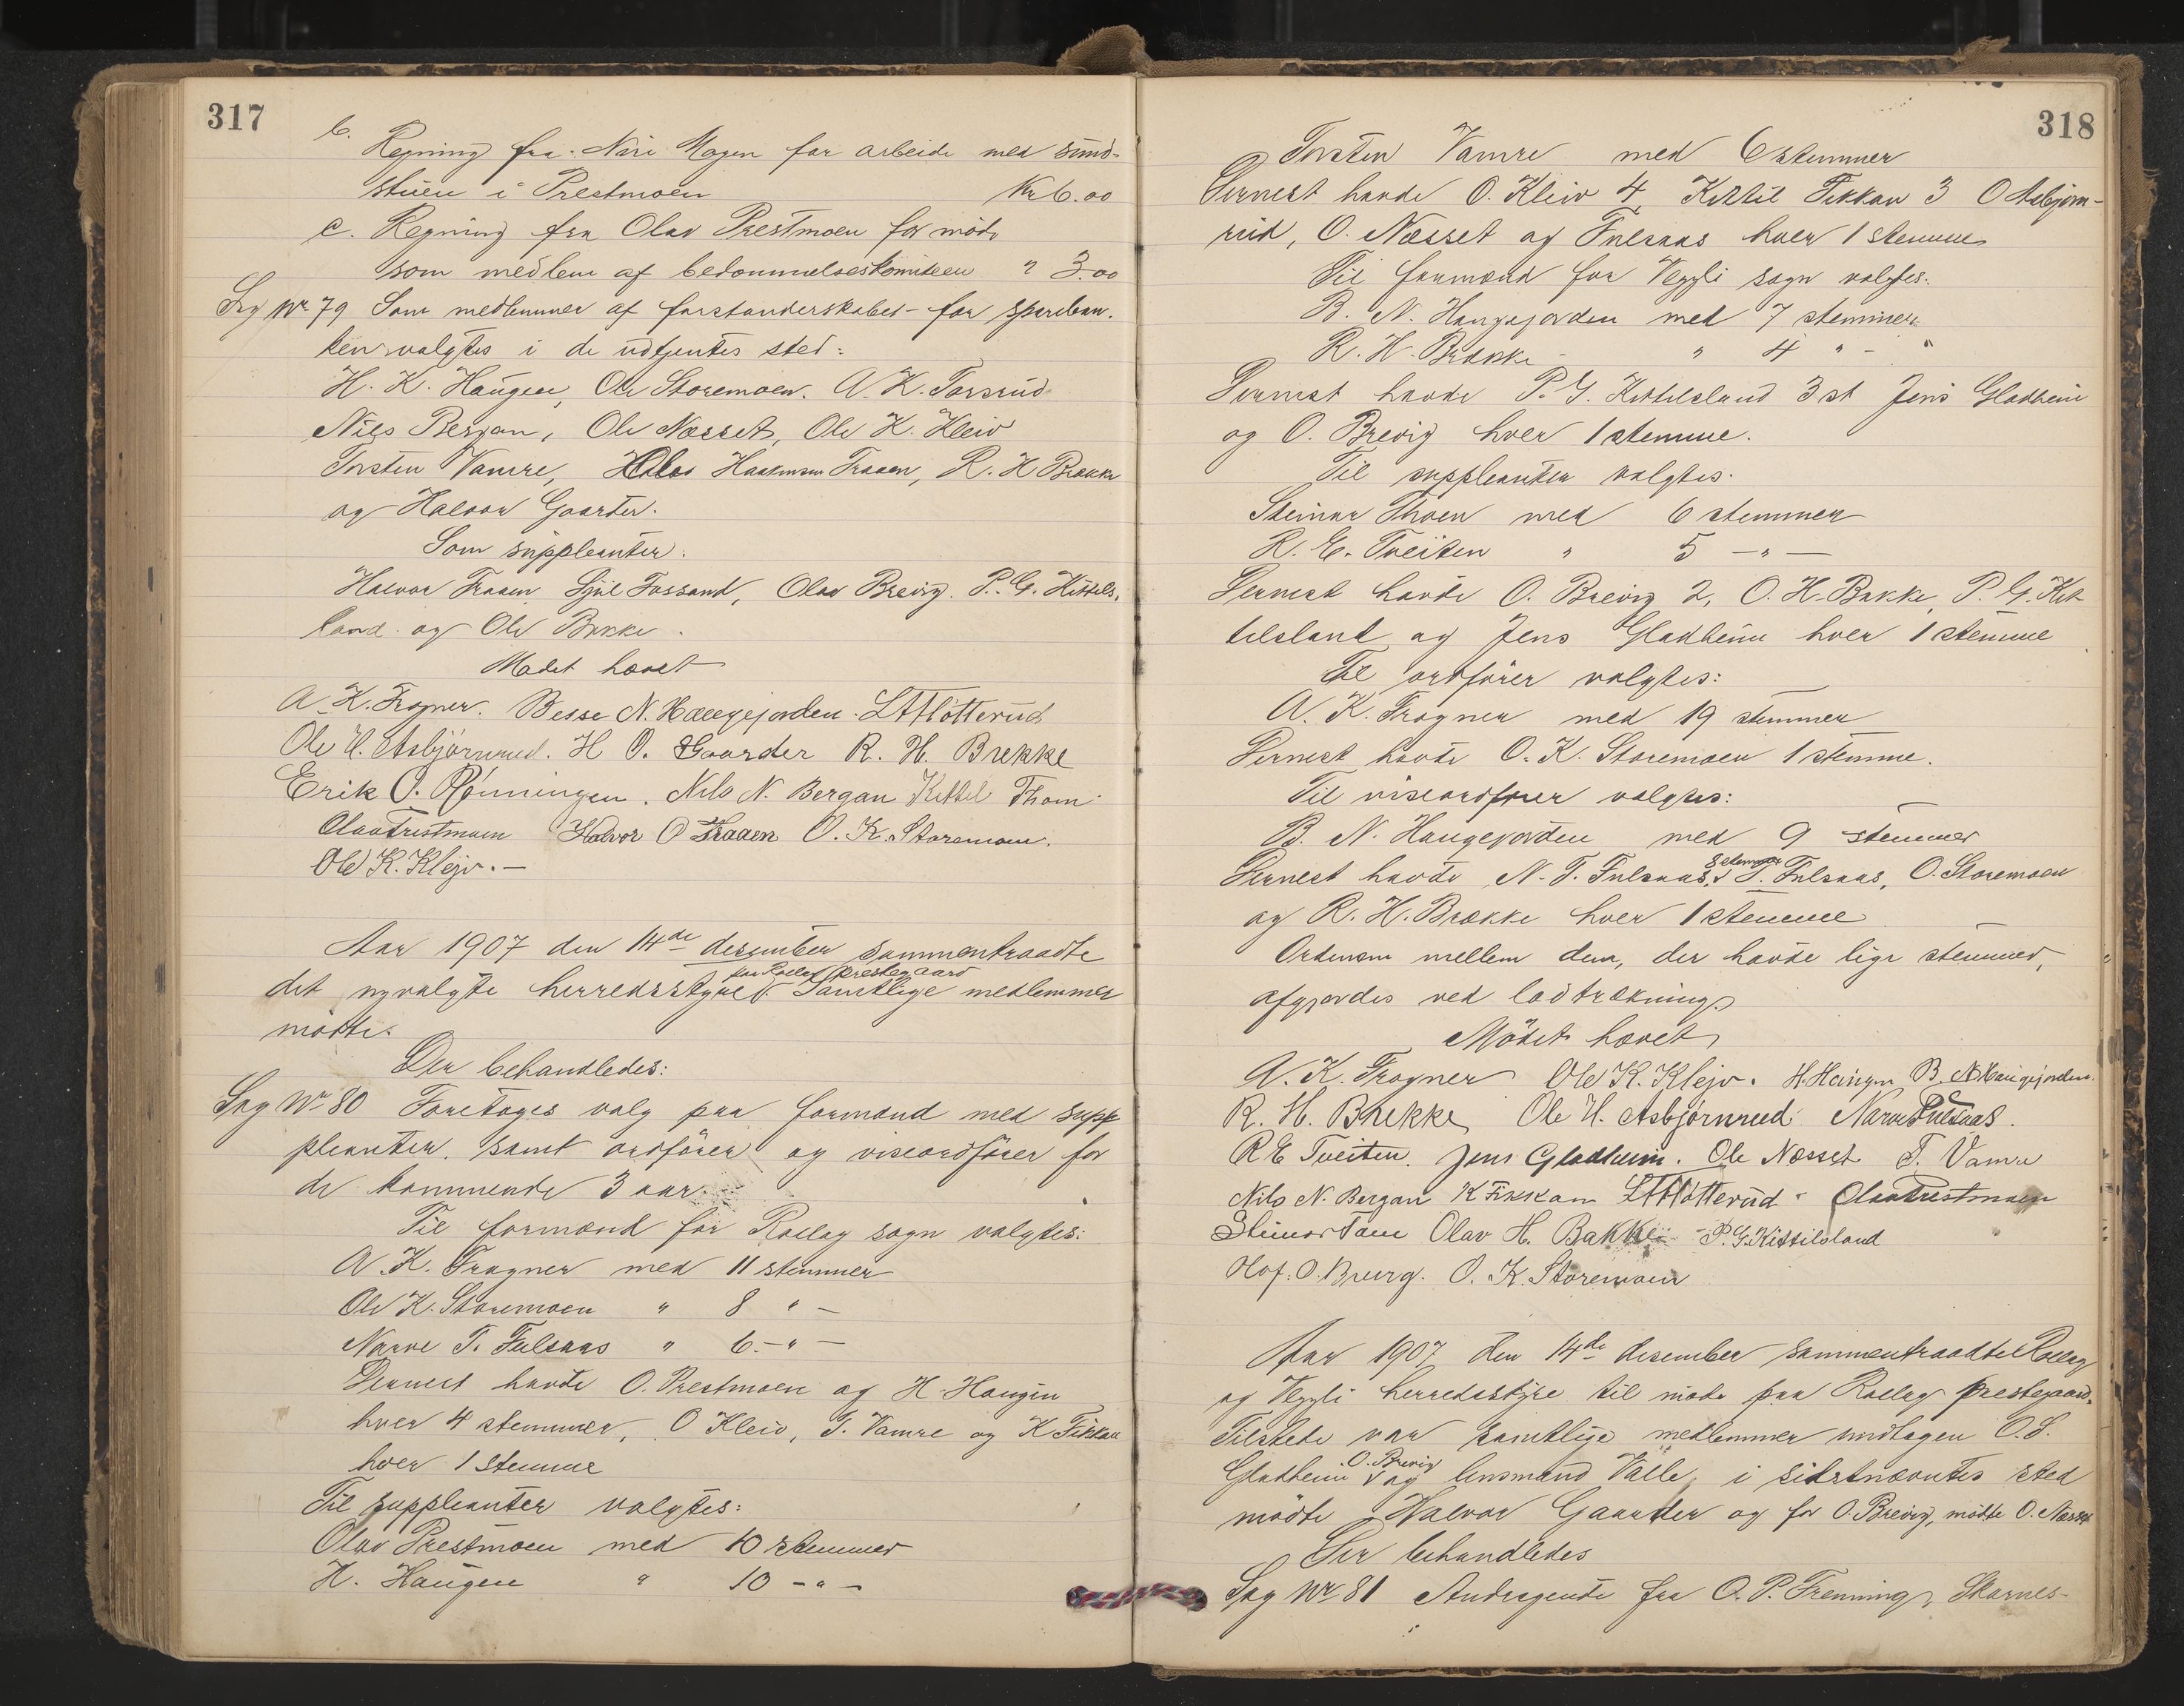 317
b. Regning fra Nari Mogen for arbeide med sund-
stuen i Prestmoen Kr 6.00
c. Regning fra Olav Prestmoen for möde
som medlem af bedömmelseskomiteen " 3.00
Sag Nr 79 Som medlemmer af forstanderskabet for spareban-
ken valgtes i de udtjentes sted:
H. K. Haugen, Ole Storemoen. A. K. Forsrud
Nils Bergan, Ole Næsset, Ole K. Kleiv
Torsten Vamre, Haakonsen Fraaen, R. H Brække
og Halvor Gaarder.
Som suppleanter:
Halvor Fraaen Fossand, Olav Brevig. P. G. Kittels-
land og Ole Bakke.
Mødet hævet
A. K. Frogner. Besse N. Haugejorden
Ole H. Asbjörnrud. H O. Gaarder R. H. Brekke
Erik O. Rønningen. Nils N. Bergan Kittil Thom
Olav Prestmoen Halvor O Fraaen O. K. Storemoen.
Ole K. Klejv. —
Aar 1907 den 14de desember sammentraadte
det nyvalgte herredsstyre paa Rollag prestegaard. Samtlige medlemmer
mødte.
Der behandledes:
Sag Nr 80 Foretoges valg paa formænd med supp
pleanter, samt ordförer og viseordförer for
de kommende 3 aar.
Til formænd for Rollag sogn valgtes:
A. K. Frogner med 11 stemmer
Ole K. Storemoen " 8 " —
Narve T. Fulsaas " 6 — " —
Dernest havde O. Prestmoen og H. Haugen
hver 4 stemmer, O Kleiv, T. Vamre og K Fikkan
hver 1 stemme
Til suppleanter valgtes:
Olav Prestmoen med 10 stemmer
H. Haugen " 10 — " —
318
Torsten Vamre med 6 stemmer
Dernest havde O. Kleiv 4, Kittil Fikkan 3 O Asbjørn-
rud, O. Næsset og Fulsaas hver 1 stemme
Til formænd for Veggli sogn valgtes:
B. N. Haugejorden med 7 stemmer
R. H. Brække " 4 " — "
Dernest havde P. G. Kittilsland 3 st Jens Gladheim
og O. Brevig hver 1 stemme.
Til suppleanter valgtes:
Steinar Thoen med 6 stemmer
R. E. Tveiten " 5 — " —
Dernest havde O. Brevig 2, O. H. Bakke, P. G. Kit
tilsland og Jens Gladheim hver 1 stemme
Til ordförer valgtes:
A. K. Frogner med 19 stemmer
Dernest havde O. K. Storemoen 1 stemme.
Til viseordfører valgtes:
B. N. Haugejorden med 9 stemmer
Dernest havde N. T. Fulsaas 8 stemmer, T. Fulsaas, O. Storemoen
og R. H. Brække hver 1 stemme
Ordenen mellem dem, der havde lige stemmer,
afgjordes ved lodtrækning.
Mödet hævet
A. K. Frogner Ole K. Klejv. H. Haugen B. N. Haugejorden.
R. H. Brekke Ole H. Asbjörnrud Narve Fulsaas.
R E Tveiten. Jens Gladheim. Ole Næsset T. Vamre
Nils N. Bergan K Fikkan Olav Prestmoen
Steinar Olav H. Bakke P. G. Kittilsland
Olaf. O. Brevig. O. K. Storemoen
Aar 1907 den 14de desember sammentraadte Rollag
og Veggli herredsstyre til möde paa Rollag prestegaard.
Tilstede var samtlige medlemmer undtagen O. S.
Gladheim O. Brevig og lensmand Valle, i sidstnævntes sted
mödte Halvor Gaarder og for O. Brevig, mödte O. Næsset
Der behandledes
Sag Nr 81 Andragende fra O. P. Frenning, Skarnes-